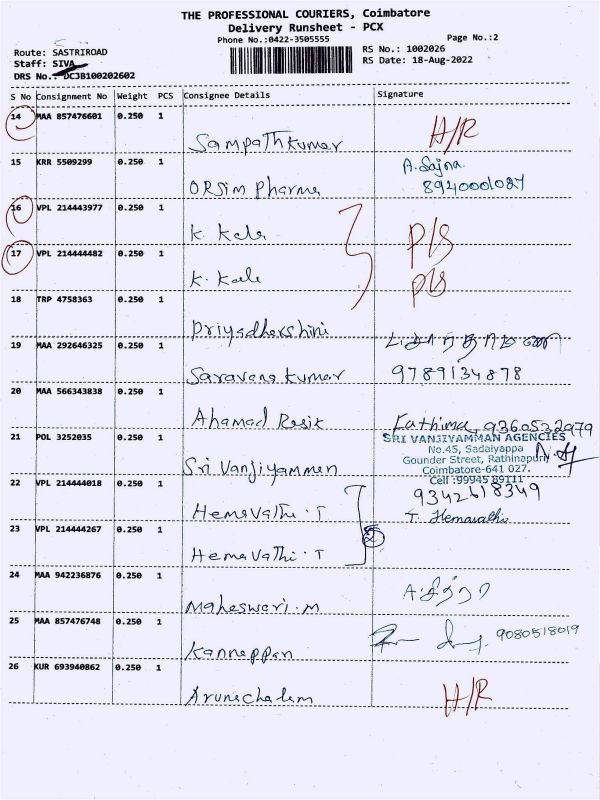 THE PROFESSIONAL COURIERS, Coimbatore
Delivery Runsheet - PCX
Phone No.:0422-3505555
Page No.:2
Route: SASTRIROAD
RS No.: 1002026
Staff: SIVA
RS Date: 18-Aug-2022
DRS No.: DC3B100202602
S No Consignment No Weight PCS Consignee Details Signature
14 MAA 857476601 0.250 1
Sampathkumar H/R
15 KRR 5509299 0.250 1 A. Sajna
ORSim Pharma 8940001087
16 VPL 214443977 0.250 1
K. Kala P/S
17 VPL 214444482 0.250 1
K. Kala P/S
18 TRP 4758363 0.250 1
Priyadharshini
19 MAA 292646325 0.250 1
Saravana kumar 9789134878
20 MAA 566343838 0.250 1
Ahamad Rasik Fathima, 9360532979
21 POL 3252035 0.250 1 SRI VANJIYAMMAN AGENCIES
No.45, Sadaiyappa
Gounder Street, Rathinapuri
Sri Vanjiyammen Coimbatore-641 027.
Cell :99945 89111
22 VPL 214444018 0.250 1 9342618349
Hemavathi . T T. Hemavathi
23 VPL 214444267 0.250 1 2
Hemavathi . T
24 MAA 942236876 0.250 1
Maheswari . M A. சித்ரா
25 MAA 857476748 0.250 1
Kannappan 9080518019
26 KUR 693940862 0.250 1
Arunachalam H/R